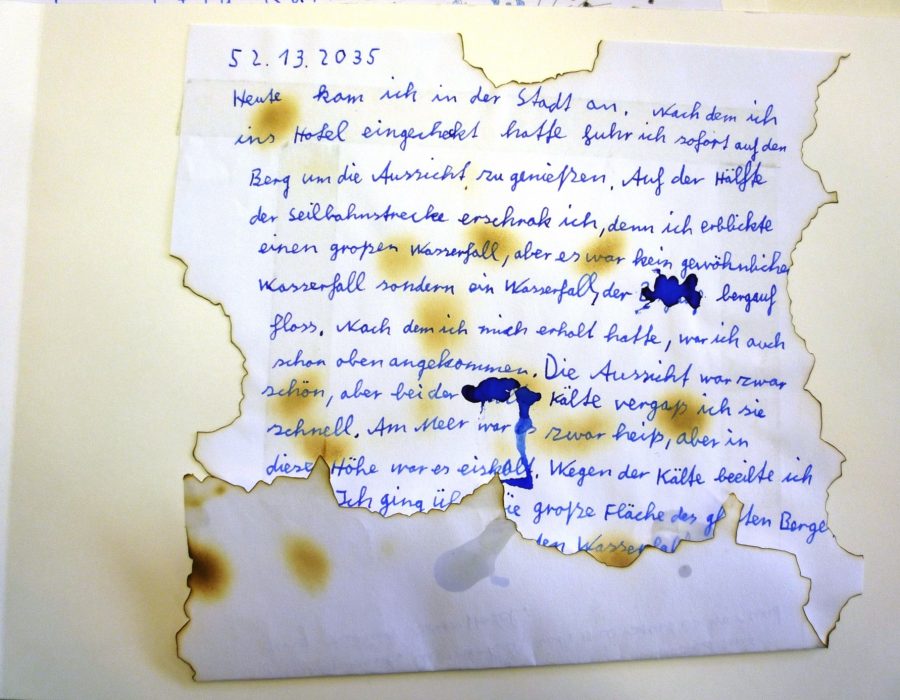 52.13.2035
Heute kam ich in der Stadt an. Nach dem ich
ins Hotel eingecheckt hatte fuhr ich sofort auf den
Berg um die Aussicht zu genießen. Auf der Hälfte
der Seilbahnstrecke erschrak ich, denn ich erblickte
einen großen Wasserfall, aber es war kein gewöhnlicher
Wasserfall sondern ein Wasserfall, der bergauf
floss. Nach dem ich mich erholt hatte, war ich auch
schon oben angekommen. Die Aussicht war zwar
schön, aber bei der Kälte vergaß ich sie
schnell. Am Meer war es zwar heiß, aber in
diese Höhe war es eiskalt. Wegen der Kälte beeilte ich
Ich ging ie große Fläche des ten Berge
den Wasserfal